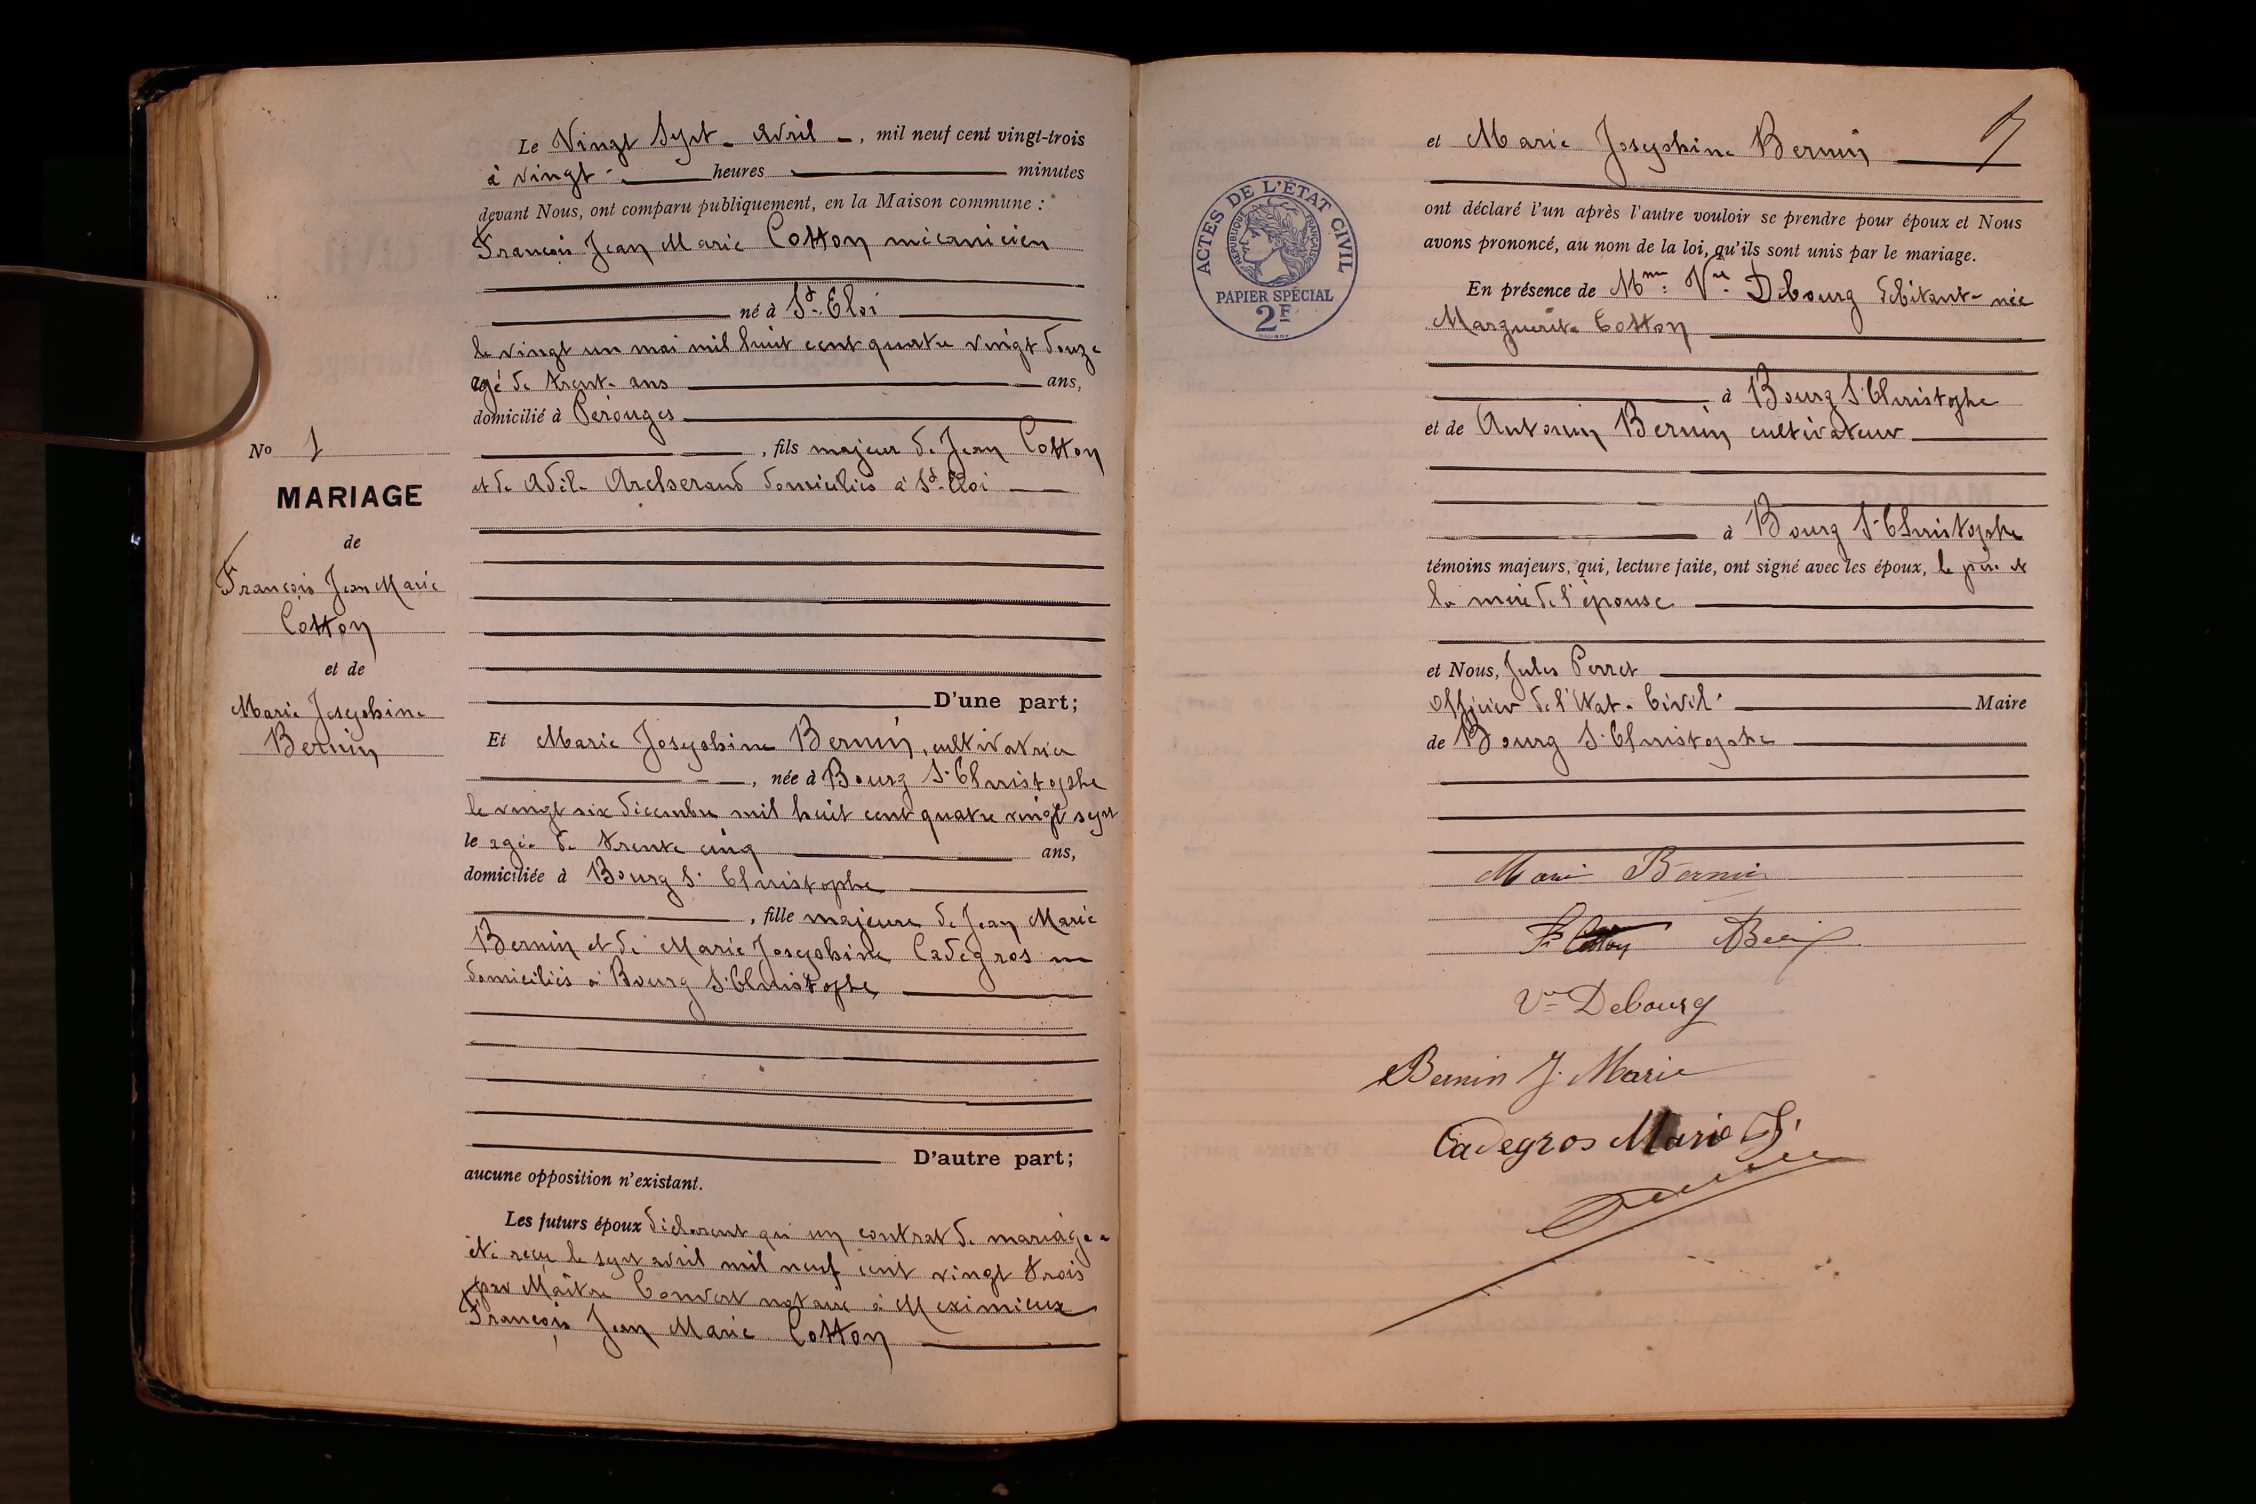 Le Vingt Sept - Avril -, mil neuf cent vingt-trois
à vingt heures minutes
devant Nous, ont comparu publiquement, en la Maison commune :
François Jean Marie Cotton mécanicien
né à St. Eloi
le vingt un mai mil huit cent quatre vingt douze
agé de trente ans ans,
domicilié à Pérouges
, fils majeur de Jean Cotton
et de Adèle domiciliés à St. Eloi
D'une part;
No 1
MARIAGE
de
François Jean Marie
Cotton
et de
Marie Josephine
Bernin
Et Marie Josephine Bernin, cultivatrice
, née à Bourg St Christophe
le vingt six décembre mil huit cent quatre vingt sept
le agée de trente cinq ans,
domiciliée à Bourg St Christophe
, fille majeure de Jean Marie
Bernin et de Marie Josephine Cadegros
domiciliés à Bourg St Christophe
D'autre part;
aucune opposition n'existant.
Les futurs époux déclarent qu'un contrat de mariage a
été reçu le sept avril mil neuf cent vingt trois
par Maître Convert notaire à Meximieux
François Jean Marie Cotton
ACTES DE L'ÉTAT CIVIL
RÉPUBLIQUE FRANÇAISE
PAPIER SPÉCIAL
2F
et Marie Josephine Bernin
ont déclaré l'un après l'autre vouloir se prendre pour époux et Nous
avons prononcé, au nom de la loi, qu'ils sont unis par le mariage.
En présence de Mme Vve Debourg débitante née
Marguerite Cotton
à Bourg St Christophe
et de Antonin Bernin cultivateur
à Bourg St Christophe
témoins majeurs, qui, lecture faite, ont signé avec les époux, le père et
la mère de l'épouse
et Nous, Jules Perret
Officier de l'Etat Civil Maire
de Bourg St Christophe
Marie Bernin
Cotton
Vve Debourg
Bernin J. Marie
Cadegros Marie J.